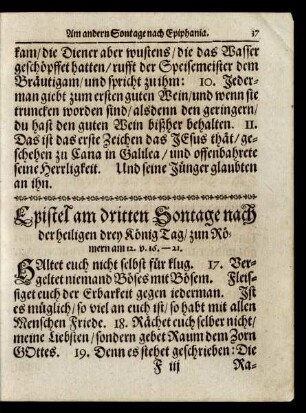 Am andern Sontage nach Epiphania. 37
kam/die Diener aber wustens/die das Wasser
geschöpffet hatten/rufft der Speisemeister dem
Bräutigam/und spricht zu ihm: 10. Jeder-
man giebt zum ersten guten Wein/und wenn sie
truncken worden sind/alsdenn den geringern/
du hast den guten Wein bißher behalten. 11.
Das ist das erste Zeichen das JEsus thät/ge-
schehen zu Cana in Galilea/und offenbahrete
seine Herrligkeit. Und seine Jünger glaubten
an ihn.
Epistel am dritten Sontage nach
der heiligen drey König Tag/zun Rö-
mern am 12. v. 16. — 21.
HAltet euch nicht selbst für klug. 17. Ver-
geltet niemand Böses mit Bösem. Fleis-
siget euch der Erbarkeit gegen iederman. Jst
es müglich/so viel an euch ist/so habt mit allen
Menschen Friede. 18. Rächet euch selber nicht/
meine Liebsten/sondern gebet Raum dem Zorn
GOttes. 19. Denn es stehet geschrieben: Die
F iij Ra-